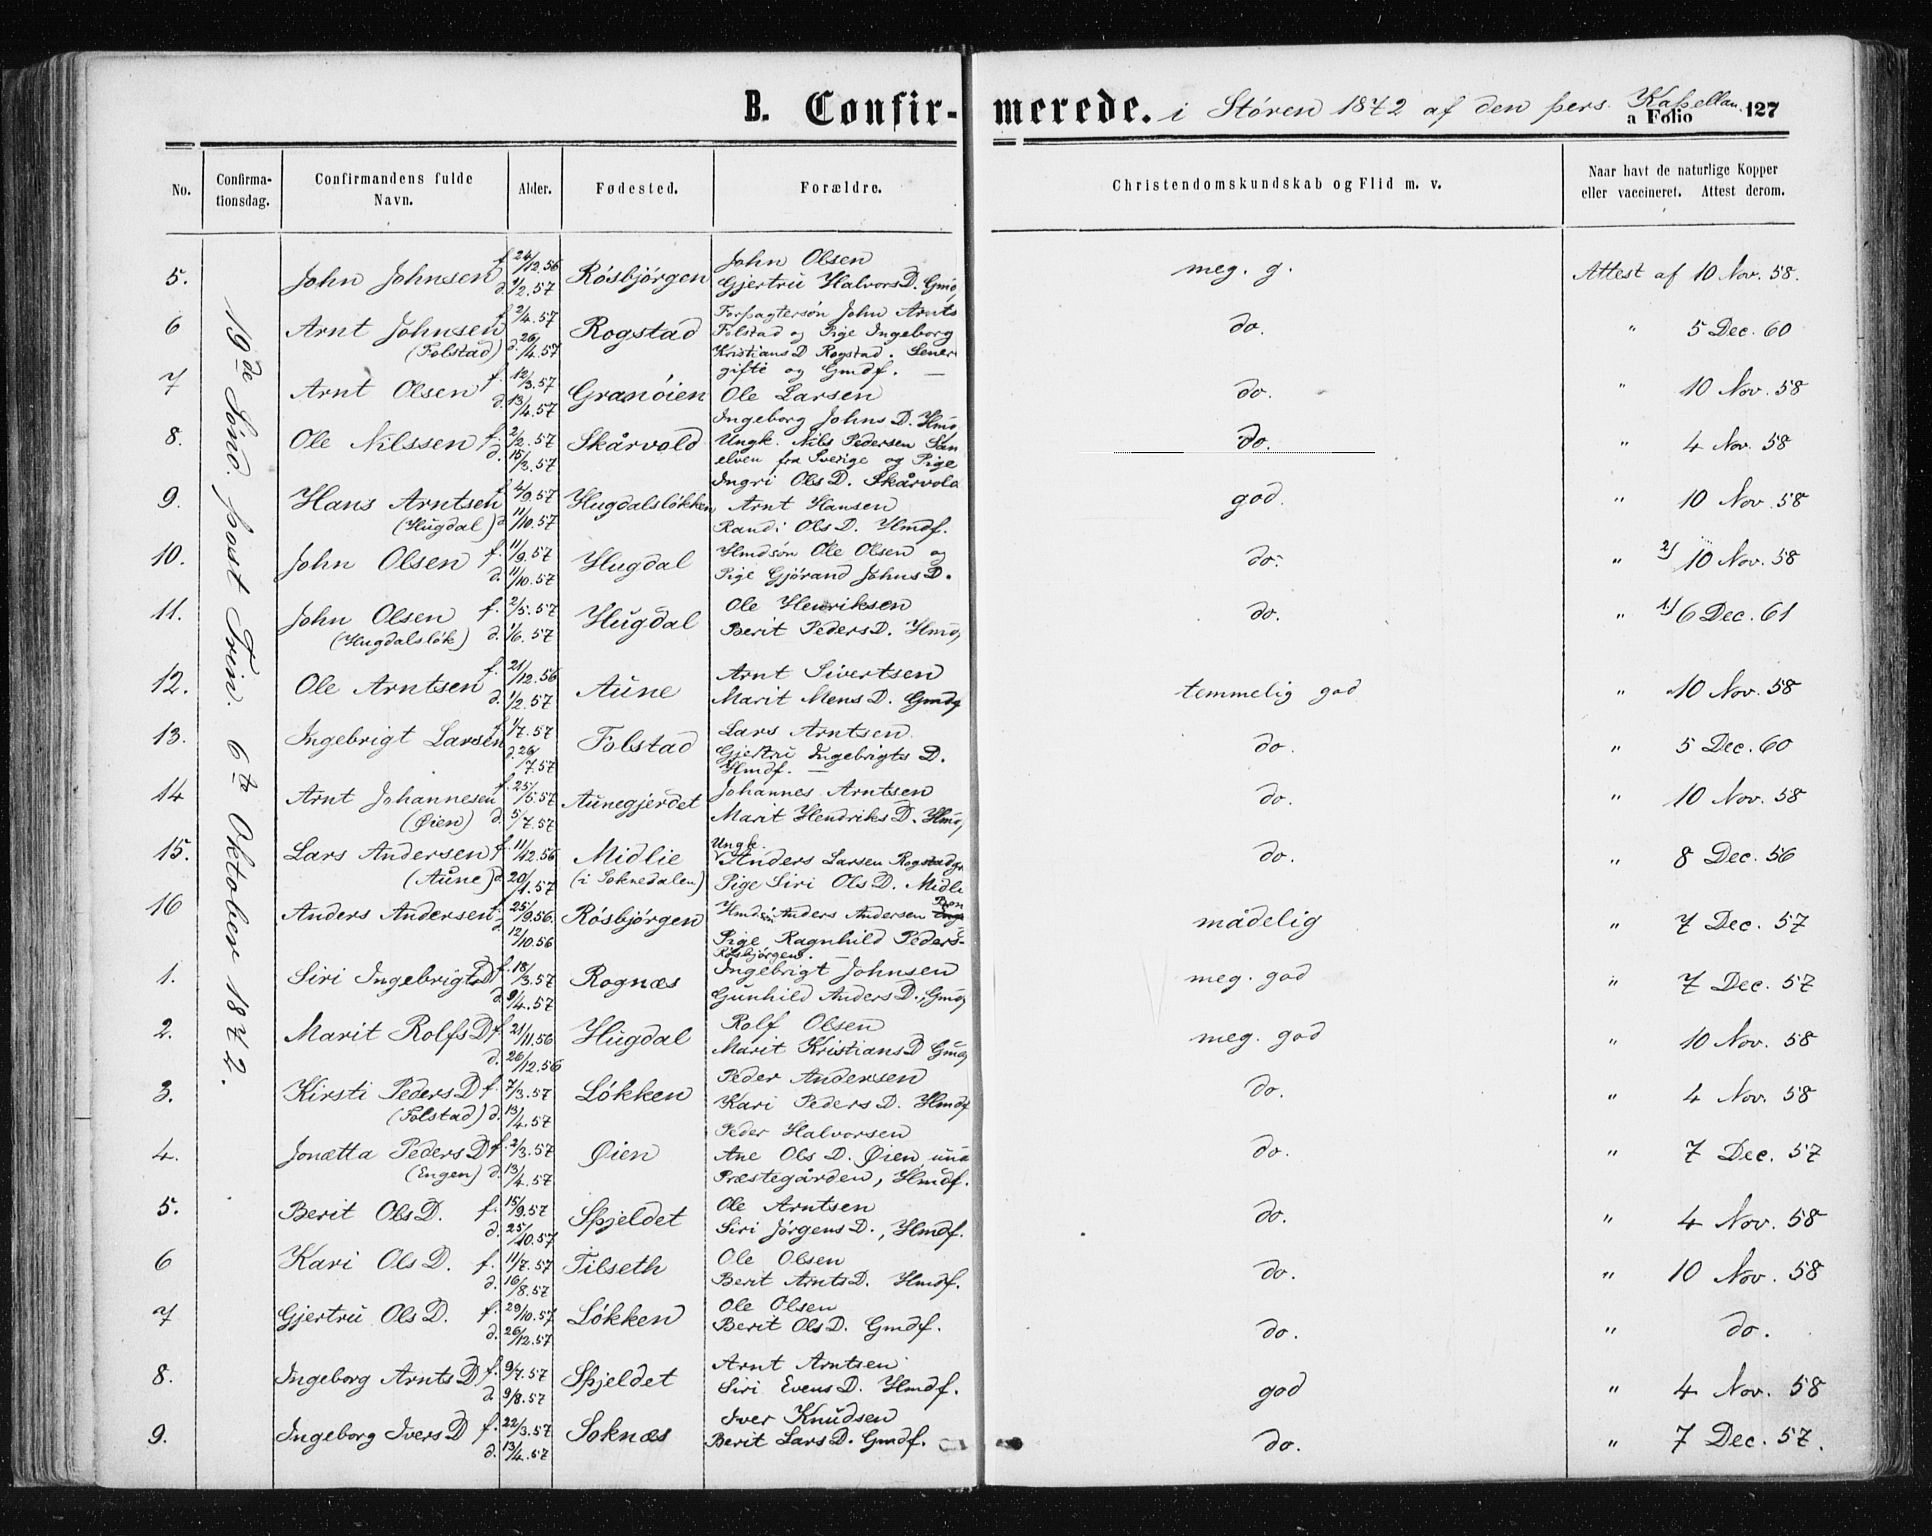 B. Confirmerede. i Støren 1872 af den pers. Kapellan. a Folio 127
No. Confirmationsdag. Confirmandens fulde Navn. Alder. Fødested. Forældre. Christendomskundskab og Flid m. v. Naar havt de naturlige Kopper eller vaccineret. Attest derom.
19de Sönd. post Trin. 6te Oktober 1872.
5. John Johnsen f. 24/12.56 Rösbjörgen John Olsen meg. g. Attest af 10 Nov. 58.
d. 1/2.57 Gjertru Halvors D. Gmd
6 Arnt Johnsen f. 2/4.57 Rogstad Forpagtersön John Arnts do. " 5 Dec. 60
(Folstad) d. 26/4.57 Folstad og Pige Ingeborg
Kristians D Rogstad. Sener
gifte og Gmdf. —
7 Arnt Olsen f. 12/3.57 Granöien Ole Larsen do. " 10 Nov. 58
d. 13/4.57 Ingeborg Johns D. Hmd
8. Ole Nilssen f. 2/2.57 Skårvold Ungk. Nils Pedersen do. " 4 Nov. 58
d. 15/3.57 elven fra Sverige og Pige
Ingri Ols D. Skårvold
9. Hans Arntsen f. 4/9.57 Hugdalslökken Arnt Hansen god. " 10 Nov. 58
(Hugdal) d. 11/10.57 Randi Ols D. Hmdf.
10. John Olsen f. 11/9.57 Hugdal Hmdsön Ole Olsen og do. " 2) 10 Nov. 58
d. 11/10.57 Pige Gjörand Johns D.
11. John Olsen f. 2/5.57 Hugdal Ole Henriksen do. " 1) 6 Dec. 61
(Hugdalslök) d. 1/6.57 Berit Peders D. Hmd
12. Ole Arntsen f. 21/12.56 Aune Arnt Sivertsen temmelig god " 10 Nov. 58
d. 1/2.57 Marit Mens D. Gmdf
13. Ingebrigt Larsen f. 1/7.57 Folstad Lars Arntsen do. " 5 Dec. 60
d. 26/7.57 Gjertru Ingebrigts D.
Hmdf. —
14 Arnt Johannesen f. 25/5.57 Aunegjerdet Johannes Arntsen do. " 10 Nov. 58
(Øien) d. 5/7.57 Marit Hendriks D. Hmd
15. Lars Andersen f. 11/12.56 Midlie Ungk. Anders Larsen Rogstadg do. " 8 Dec. 56
(Aune) d. 20/1.57 (i Soknedalen) Pige Siri Ols D. Midli
16 Anders Andersen f. 25/9.56. Rösbjörgen Hmdsön Anders Andersen mådelig " 7 Dec. 57
12/10.56 Pige Ragnhild Peders-
Rösbjörgen. —
1. Siri Ingebrigts D f. 18/3.57 Rognæs Ingebrigt Johnsen meg. god " 7 Dec. 57
d. 9/4.57 Gunhild Anders D. Gmd
2. Marit Rolfs D f. 21/11.56 Hugdal Rolf Olsen meg. god " 10 Nov. 58
d. 26/12.56 Marit Kristians D Gmd
3. Kirsti Peders D f. 7/3.57 Lökken Peder Andersen do. " 4 Nov. 58
(Folstad) d. 13/4.57 Kari Peders D. Hmdf
4. Jonetta Peders D f. 2/3.57 Øien Peder Halvorsen do. " 7 Dec. 57
(Engen) d. 13/4.57 Ane Ols D. Øien und
Præstegården, Hmdf.
5. Berit Ols D. f. 15/9.57 Spjeldet Ole Arntsen do. " 4 Nov. 58
d. 25/10.57 Siri Jörgens D., Hmdf.
6 Kari Ols D. f. 11/7.57 Tilseth Ole Olsen do. " 10 Nov. 58
d. 16/8.57 Berit Arnts D. Hmdf.
7 Gjertru Ols D. f. 29/10.57 Lökken Ole Olsen do. " do.
d. 26/12.57 Berit Ols D. Gmdf.
8. Ingeborg Arnts D f. 9/7.57 Spjeldet Arnt Arntsen god " 4 Nov. 58
d. 9/8.57 Siri Evens D. Hmdf.
9. Ingeborg Ivers D f. 22/3.57 Soknæs Iver Knudsen do. " 7 Dec. 57.
d. 13/4.57 Berit Lars D. Gmdf.